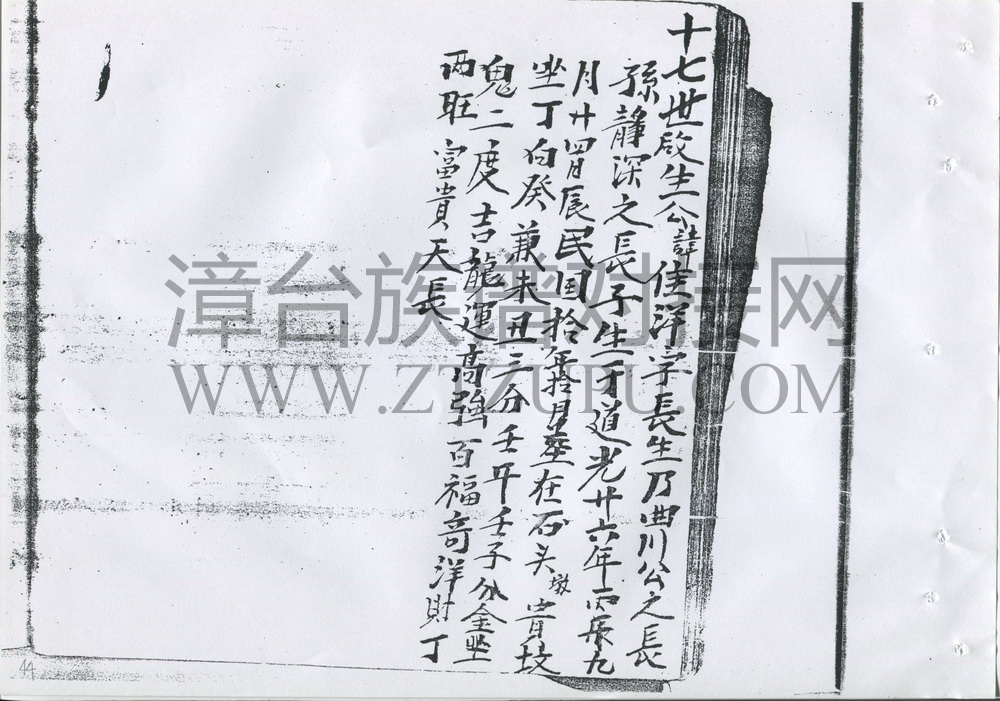 十七世啟生公諱佳洋字長生乃曲川公之長
孫靜深之長子生于道光廿六年丙辰九
月廿四日辰民国拾年拾月塟在石头墩背坟
坐丁向癸兼未丑三分壬午壬子分金坐
鬼二度吉龍運高強百福竒洋財丁
两旺富貴天長
漳台族谱对接网
WWW.ZTZUPU.COM
44